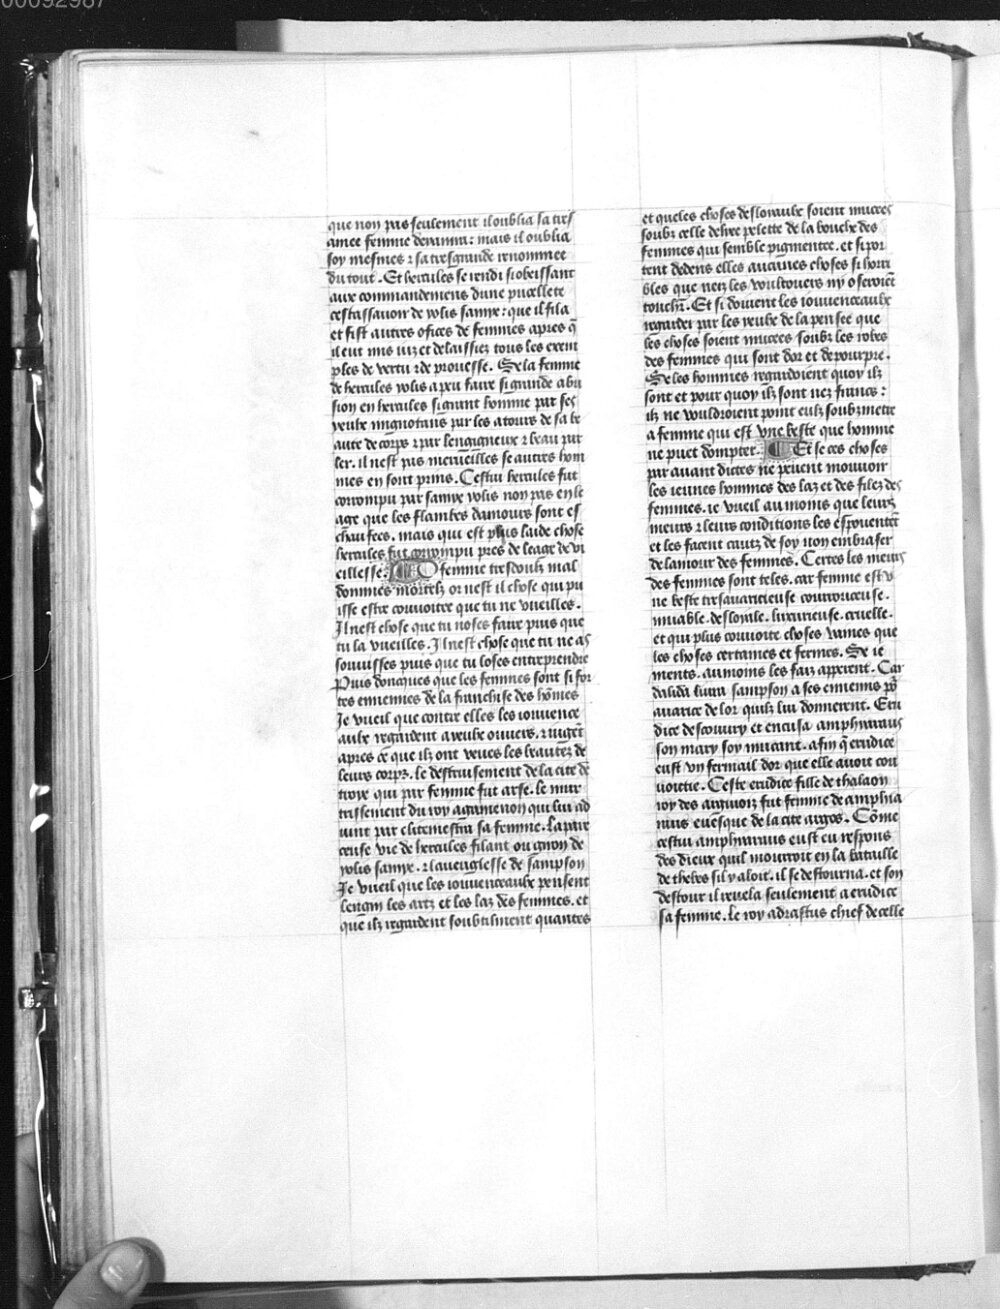 00092987
que non pas seulement il oublia sa tres
amee femme deianira: mais il oublia
soy mesmes ⁊ sa tresgrande renommee
du tout. Et hercules se rendi si obeissant
aux commandemens dune pucellete
cestassauoir de yolis samye: que il fila
et fist autres ofices de femmes apres q̄
il eut mis ius et delaissiez tous les exem
ples de vertu ⁊ de prouesse. Se la femme
de hercules yolis a peu faire si grande abu
sion en hercules si grant homme par ses
yeulx mignotans par les atours de sa be
aute de corps ⁊ par lengigneux ⁊ beau par
ler. il nest pas merueilles se autres hom
mes en sont prins. Cestui hercules fut
corrompu par samye yolis non pas en le
age que les flambes damours sont es
chaufees. mais qui est plus laide chose
hercules fut corrompu pres de leage de vi
eillesse. O femme tresdoulz mal
donnies mortelz or nest il chose qui pu
isse estre couuoitee que tu ne vueilles.
Il nest chose que tu noses faire puis que
tu la vueilles. Il nest chose que tu ne as
souuisses puis que tu loses entreprendre
Puis doncques que les femmes sont si for
tes ennemies de la franchise des hōmes
Je vueil que contre elles les iouuence
aulx regardent a yeulx ouuers. ⁊ iugēt
apres ce que ilz ont veues les beautez de
leurs corps. le destruisement de la cite de
troye qui par femme fut arse. le mur
trissement du roy agamenon qui lui ad
uint par clitemestra sa femme. la pare
ceuse vie de hercules filant ou giron de
yolis samye. ⁊ laueuglesse de sampson
Je vueil que les iouuenceaulx pensent
lengin les artz et les laz des femmes. et
que ilz regardent soubtilment quantes
et queles choses desloyaulx soient mucees
soubz celle deliee pelette de la bouche des
femmes qui semble pigmentee. et si por
tent dedens elles aucunes choses si horri
bles que neiz les voultouers ny oseroiēt
touchr̄. Et si doiuent les iouuenceaulx
regarder par les yeulx de la pensee que
les choses soient mucees soubz les robes
des femmes qui sont dor et de pourpre.
Se les hommes regardoient quoy ilz
sont et pour quoy ilz sont nez francs:
ilz ne vouldroient point eulz soubzmette
a femme qui est vne beste que homme
ne puet dompter. Et se ces choses
par auant dictes ne peuent mouuoir
les ieunes hommes des laz et des filez des
femmes. ie vueil au moins que leurs
meurs ⁊ leurs conditions les espouentēt
et les facent cautz de soy non embraser
de lamour des femmes. Certes les meurs
des femmes sont teles. car femme est v
ne beste tresauaricieuse courrouceuse.
muable. desloyale. luxurieuse. cruelle.
et qui plus couuoite choses vaines que
les choses certaines et fermes. Se ie
ments. au moins les faiz apperent. Car
dalida liura sampson a ses ennemis pō
auarice de lor quilz lui donnerent. Eru
dice descouury et encusa amphiaraus
son mary soy mucant. afin q̄ erudice
eust vn fermail dor que elle auoit cou
uoitie. Ceste erudice fille de thalaon
roy des arguoiz fut femme de amphia
raus euesque de la cite argos. Cōme
cestui amphiaraus eust eu respons
des dieux quil mourroit en la bataille
de thebes sil y aloit. il se destourna. et son
destour il reuela seulement a erudice
sa femme. le roy adrastus chief de celle